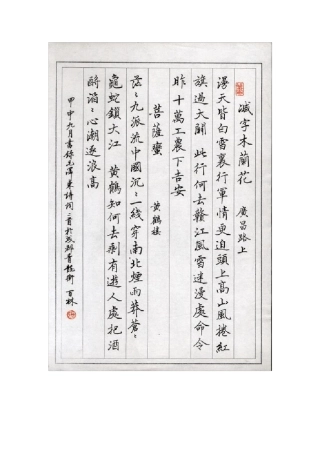 減字木蘭花 廣昌路上
漫天皆白雪裏行軍情更迫頭上高山風捲紅
旗過大關 此行何去贛江風雪迷漫處命令
昨十萬工農下吉安
菩薩蠻 黃鶴樓
茫〻九派流中國沉〻一綫穿南北煙雨莽蒼〻
龜蛇鎖大江 黃鶴知何去剩有遊人處把酒
酹滔〻心潮逐浪高
甲申九月書錄毛澤東詩詞二首於成都青龍街 百林